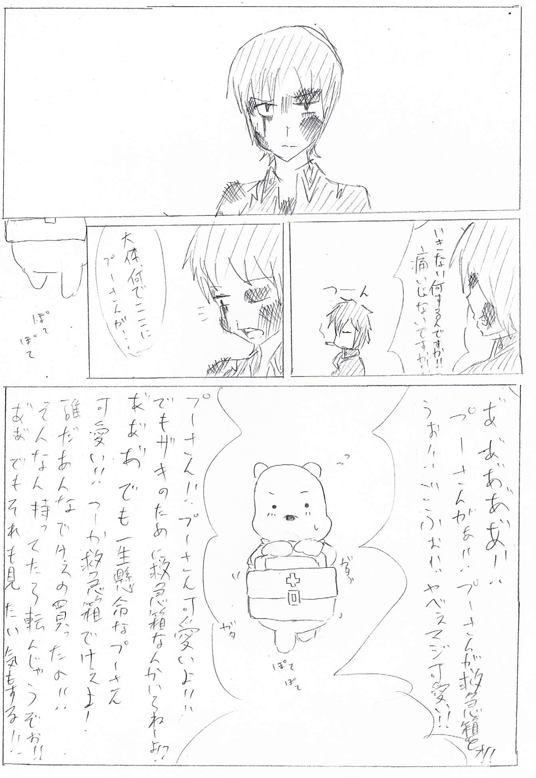 いきない何するんですか!!
痛いじゃないですか!
つーん
大体、何でここに
プーさんが…
ぽて
ぽて
あ゛あ゛あ゛あ゛!!
プーさんがぁ!!プーさんが救急箱をぉ!!
うぉ!!ヤベェマジ可愛い!!
ガタ
ぽて
ぽて
プーさん!!プーさん可愛いよ!!
でもザキのために救急箱なんかいらねーよ!?
あ゛あ゛あ゛でも一生懸命なプーさん
可愛い!!つーか救急箱でけぇよ!
誰だあんなでけぇの買ったの!!
そんなん持ってたら転んじゃうぞぉ!!
あ゛あ゛でもそれも見たい気もする!!